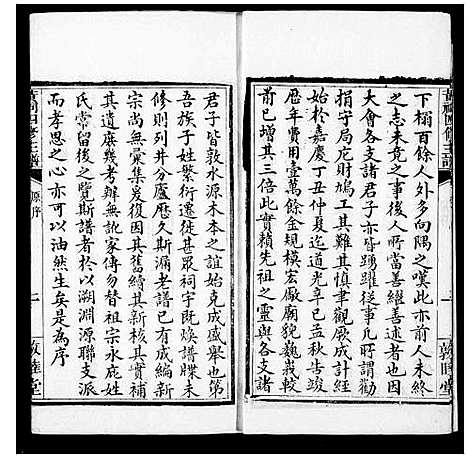 下榻百餘人外多向隅之嘆此亦前人未終
之志未竟之事後人所當善繼善述者也因
大會各支諸君子亦皆踴躍從事凡所謂勸
捐守局庀財鳩工其難其慎聿觀厥成計經
始於嘉慶丁丑仲夏迄道光辛巳孟秋告竣
歷年費用壹萬餘金規模宏敞廟貌巍峩較
前已增其三倍此實賴先祖之靈與各支諸
敦睦堂
君子皆敦水源木本之誼始克成盛舉也第
吾族子姓繁衍遷徙甚眾祠宇既煥譜牒未
修則系列并分廬歷久斯漏老譜已有成編新
宗尚無彙集爰復因其舊續其新核其實補
其遺庶幾考辦無訛家傳勿替祖宗永庇姓
氏常留後之覽斯譜者於以溯淵源聯支派
而孝思之心亦可以油然生矣是為序
四修主譜
原序
二
敦睦堂